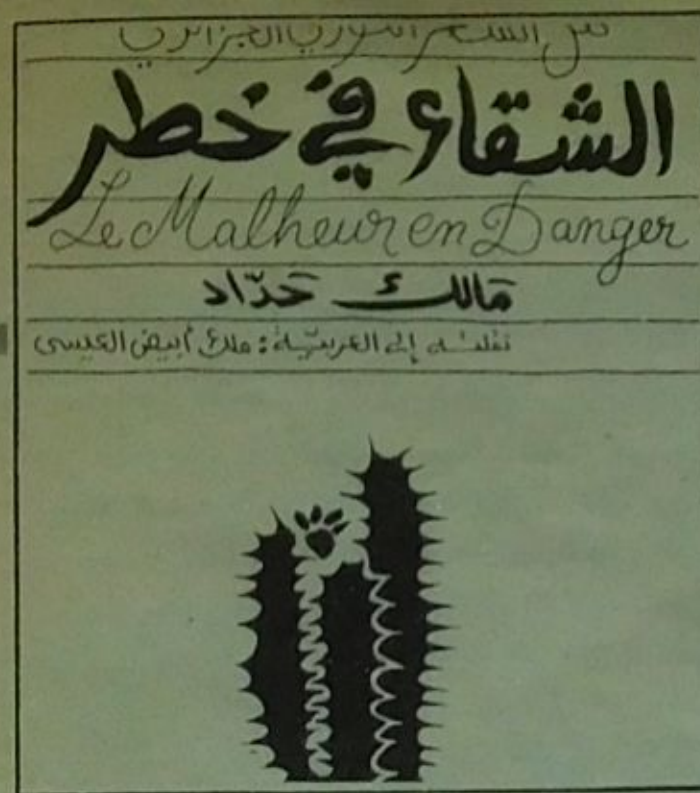 من الشعر الثوري الجزائري
الشقاء في خطر
Le Malheur en Danger
مالك حدّاد
نقلته إلى العربيّة: ملك أبيض العيسى